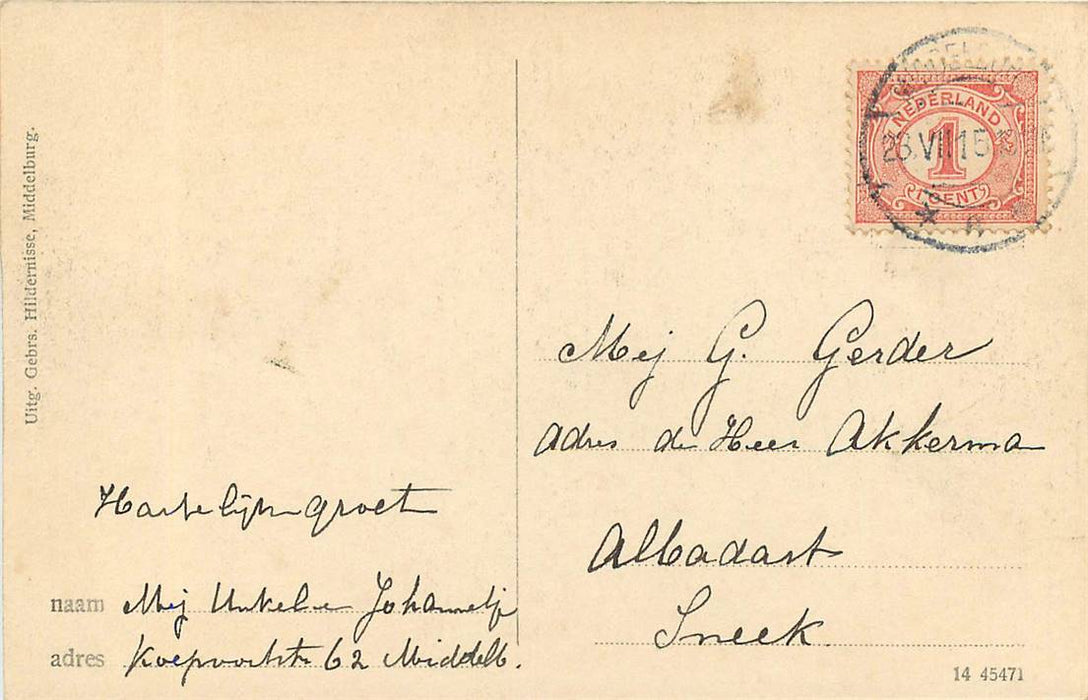 Uitg. Gebrs. Hildernisse, Middelburg.
NEDERLAND
1
1 CENT
28.VII.15
Mej G. Gerder
adres de Heer Akkerma
Albadast
Sneek.
Hartelijke groet
naam Mej Johannetje
adres 62 Middelb.
14 45471